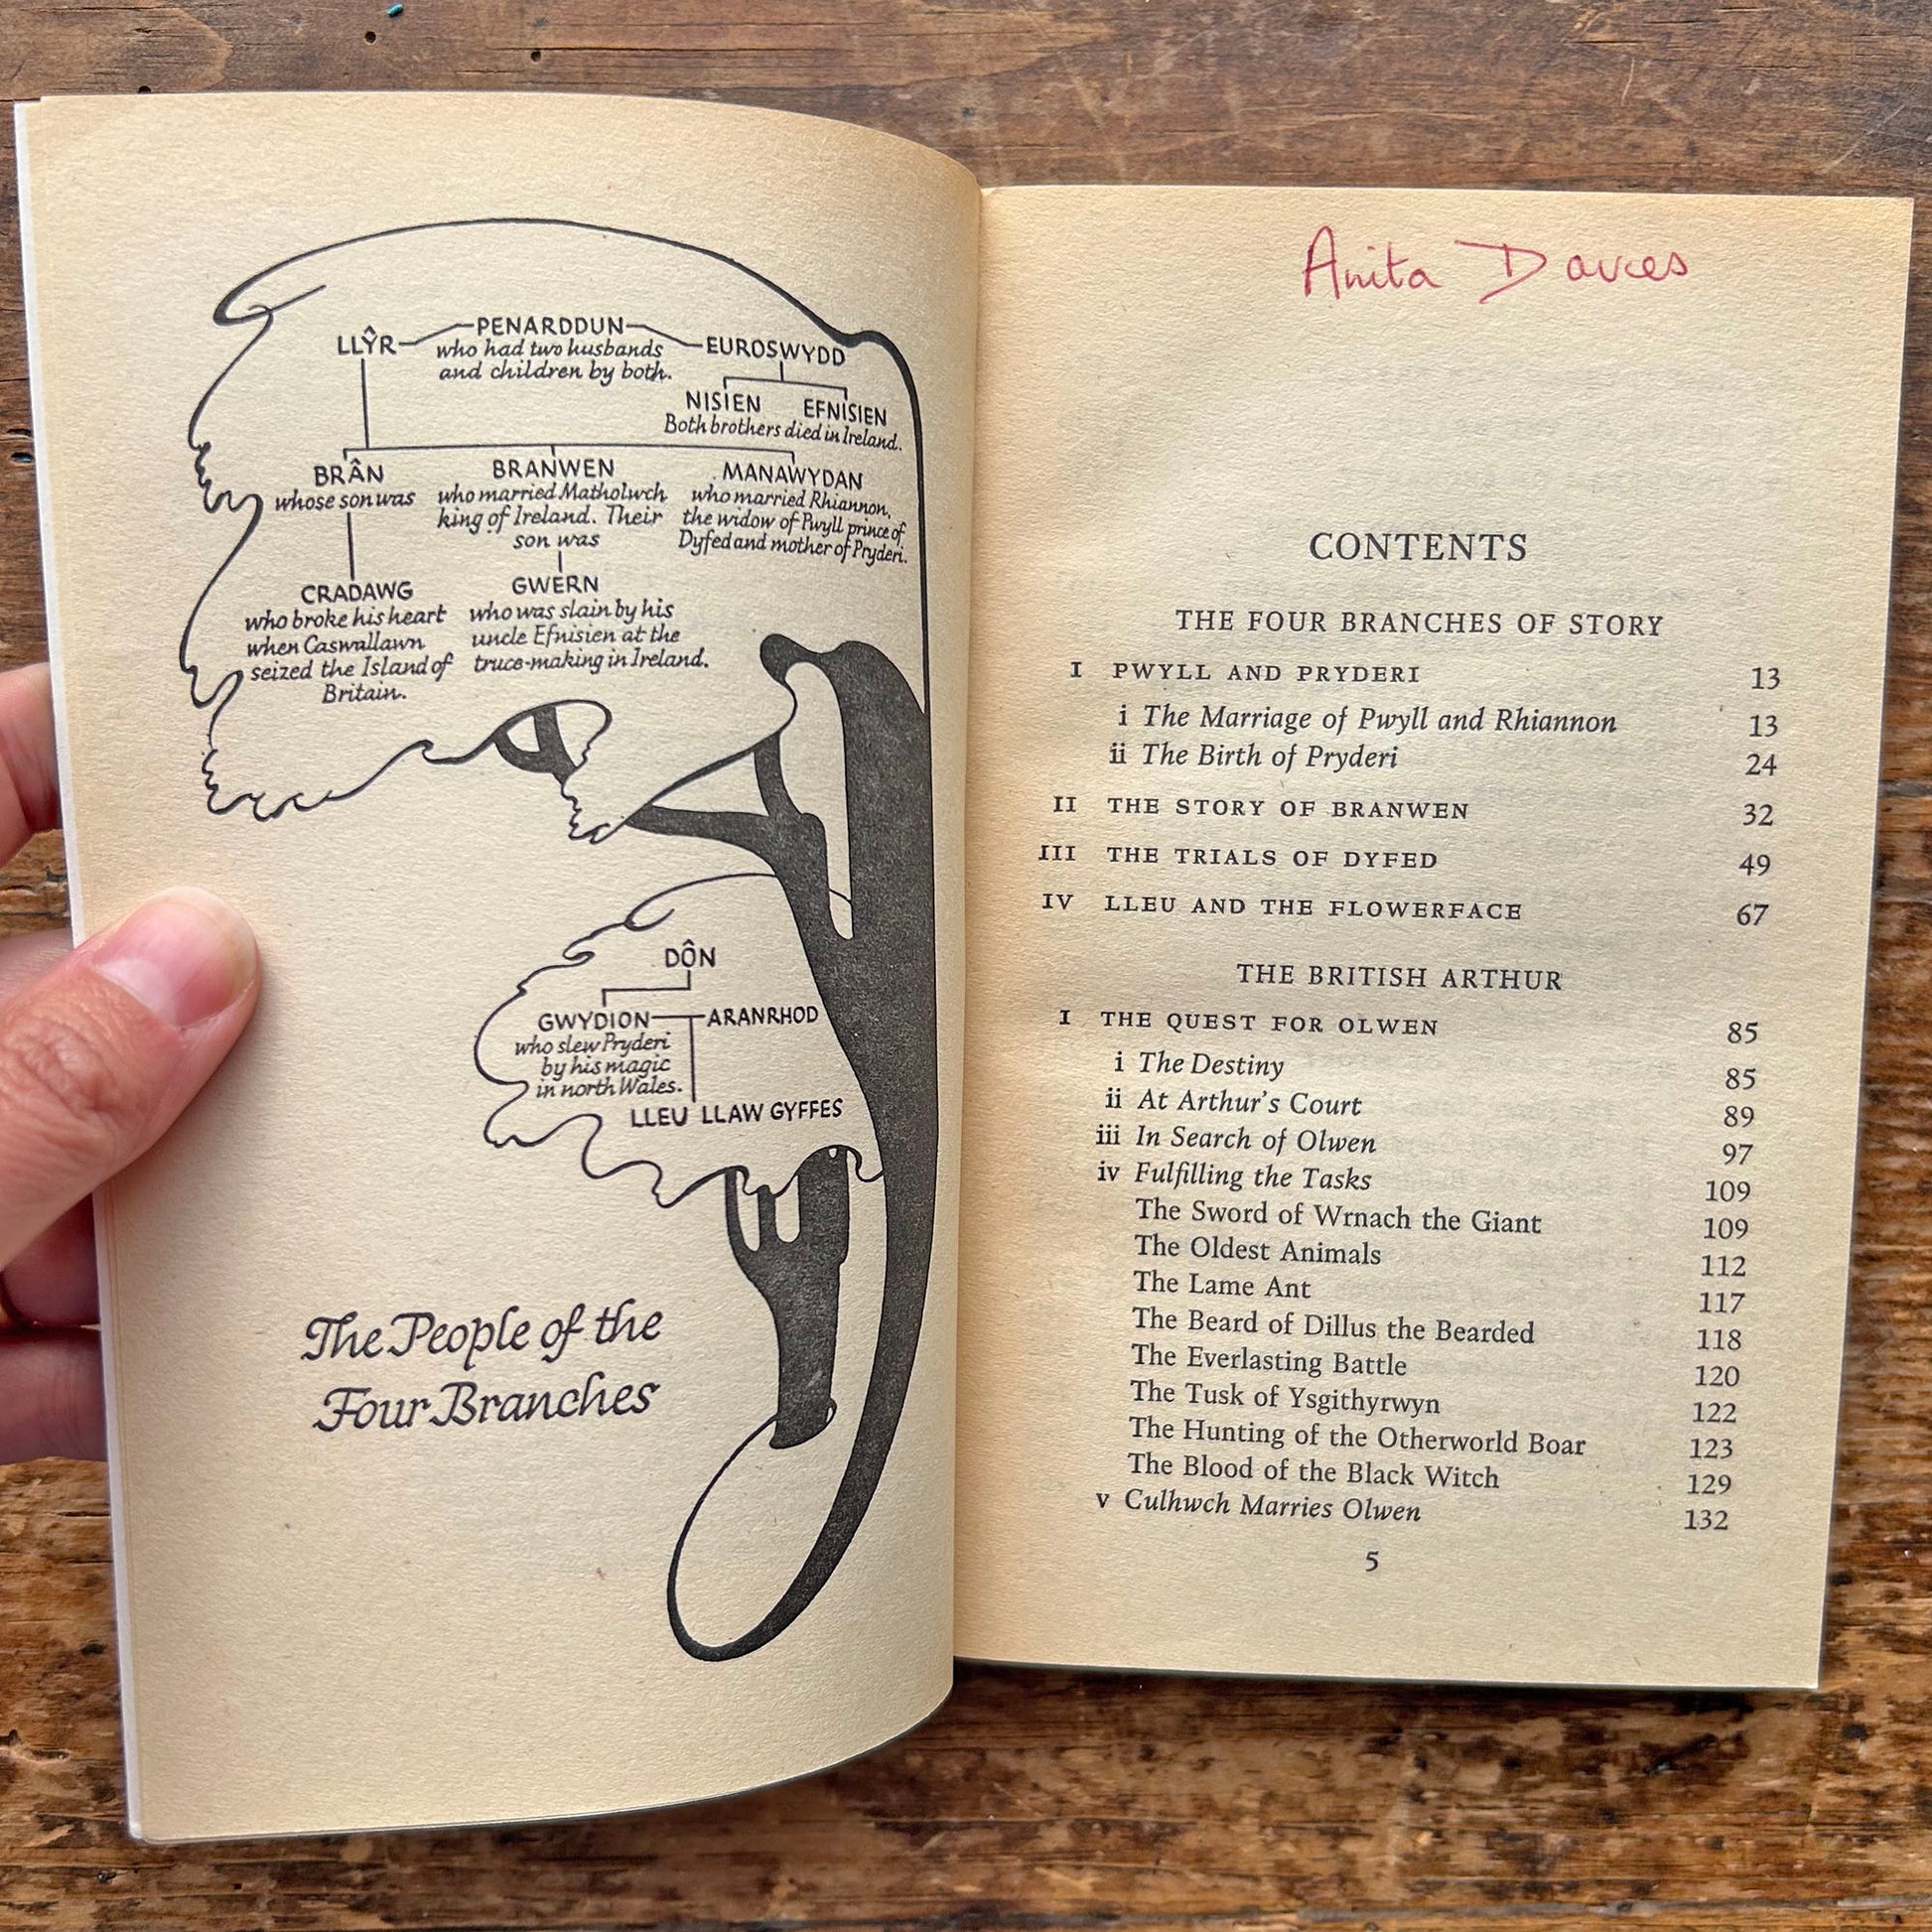 PENARDDUN
LLŶR
who had two husbands
and children by both.
EUROSWYDD
NISIEN EFNISIEN
Both brothers died in Ireland.
BRÂN
whose son was
BRANWEN
who married Matholwch
king of Ireland. Their
son was
MANAWYDAN
who married Rhiannon,
the widow of Pwyll prince of
Dyfed and mother of Pryderi.
CRADAWG
who broke his heart
when Caswallawn
seized the Island of
Britain.
GWERN
who was slain by his
uncle Efnisien at the
truce-making in Ireland.
DÔN
GWYDION ARANRHOD
who slew Pryderi
by his magic
in north Wales.
LLEU LLAW GYFFES
The People of the
Four Branches
Anita Davies
CONTENTS
THE FOUR BRANCHES OF STORY
I PWYLL AND PRYDERI 13
i The Marriage of Pwyll and Rhiannon 13
ii The Birth of Pryderi 24
II THE STORY OF BRANWEN 32
III THE TRIALS OF DYFED 49
IV LLEU AND THE FLOWERFACE 67
THE BRITISH ARTHUR
I THE QUEST FOR OLWEN 85
i The Destiny 85
ii At Arthur's Court 89
iii In Search of Olwen 97
iv Fulfilling the Tasks 109
The Sword of Wrnach the Giant 109
The Oldest Animals 112
The Lame Ant 117
The Beard of Dillus the Bearded 118
The Everlasting Battle 120
The Tusk of Ysgithyrwyn 122
The Hunting of the Otherworld Boar 123
The Blood of the Black Witch 129
v Culhwch Marries Olwen 132
5